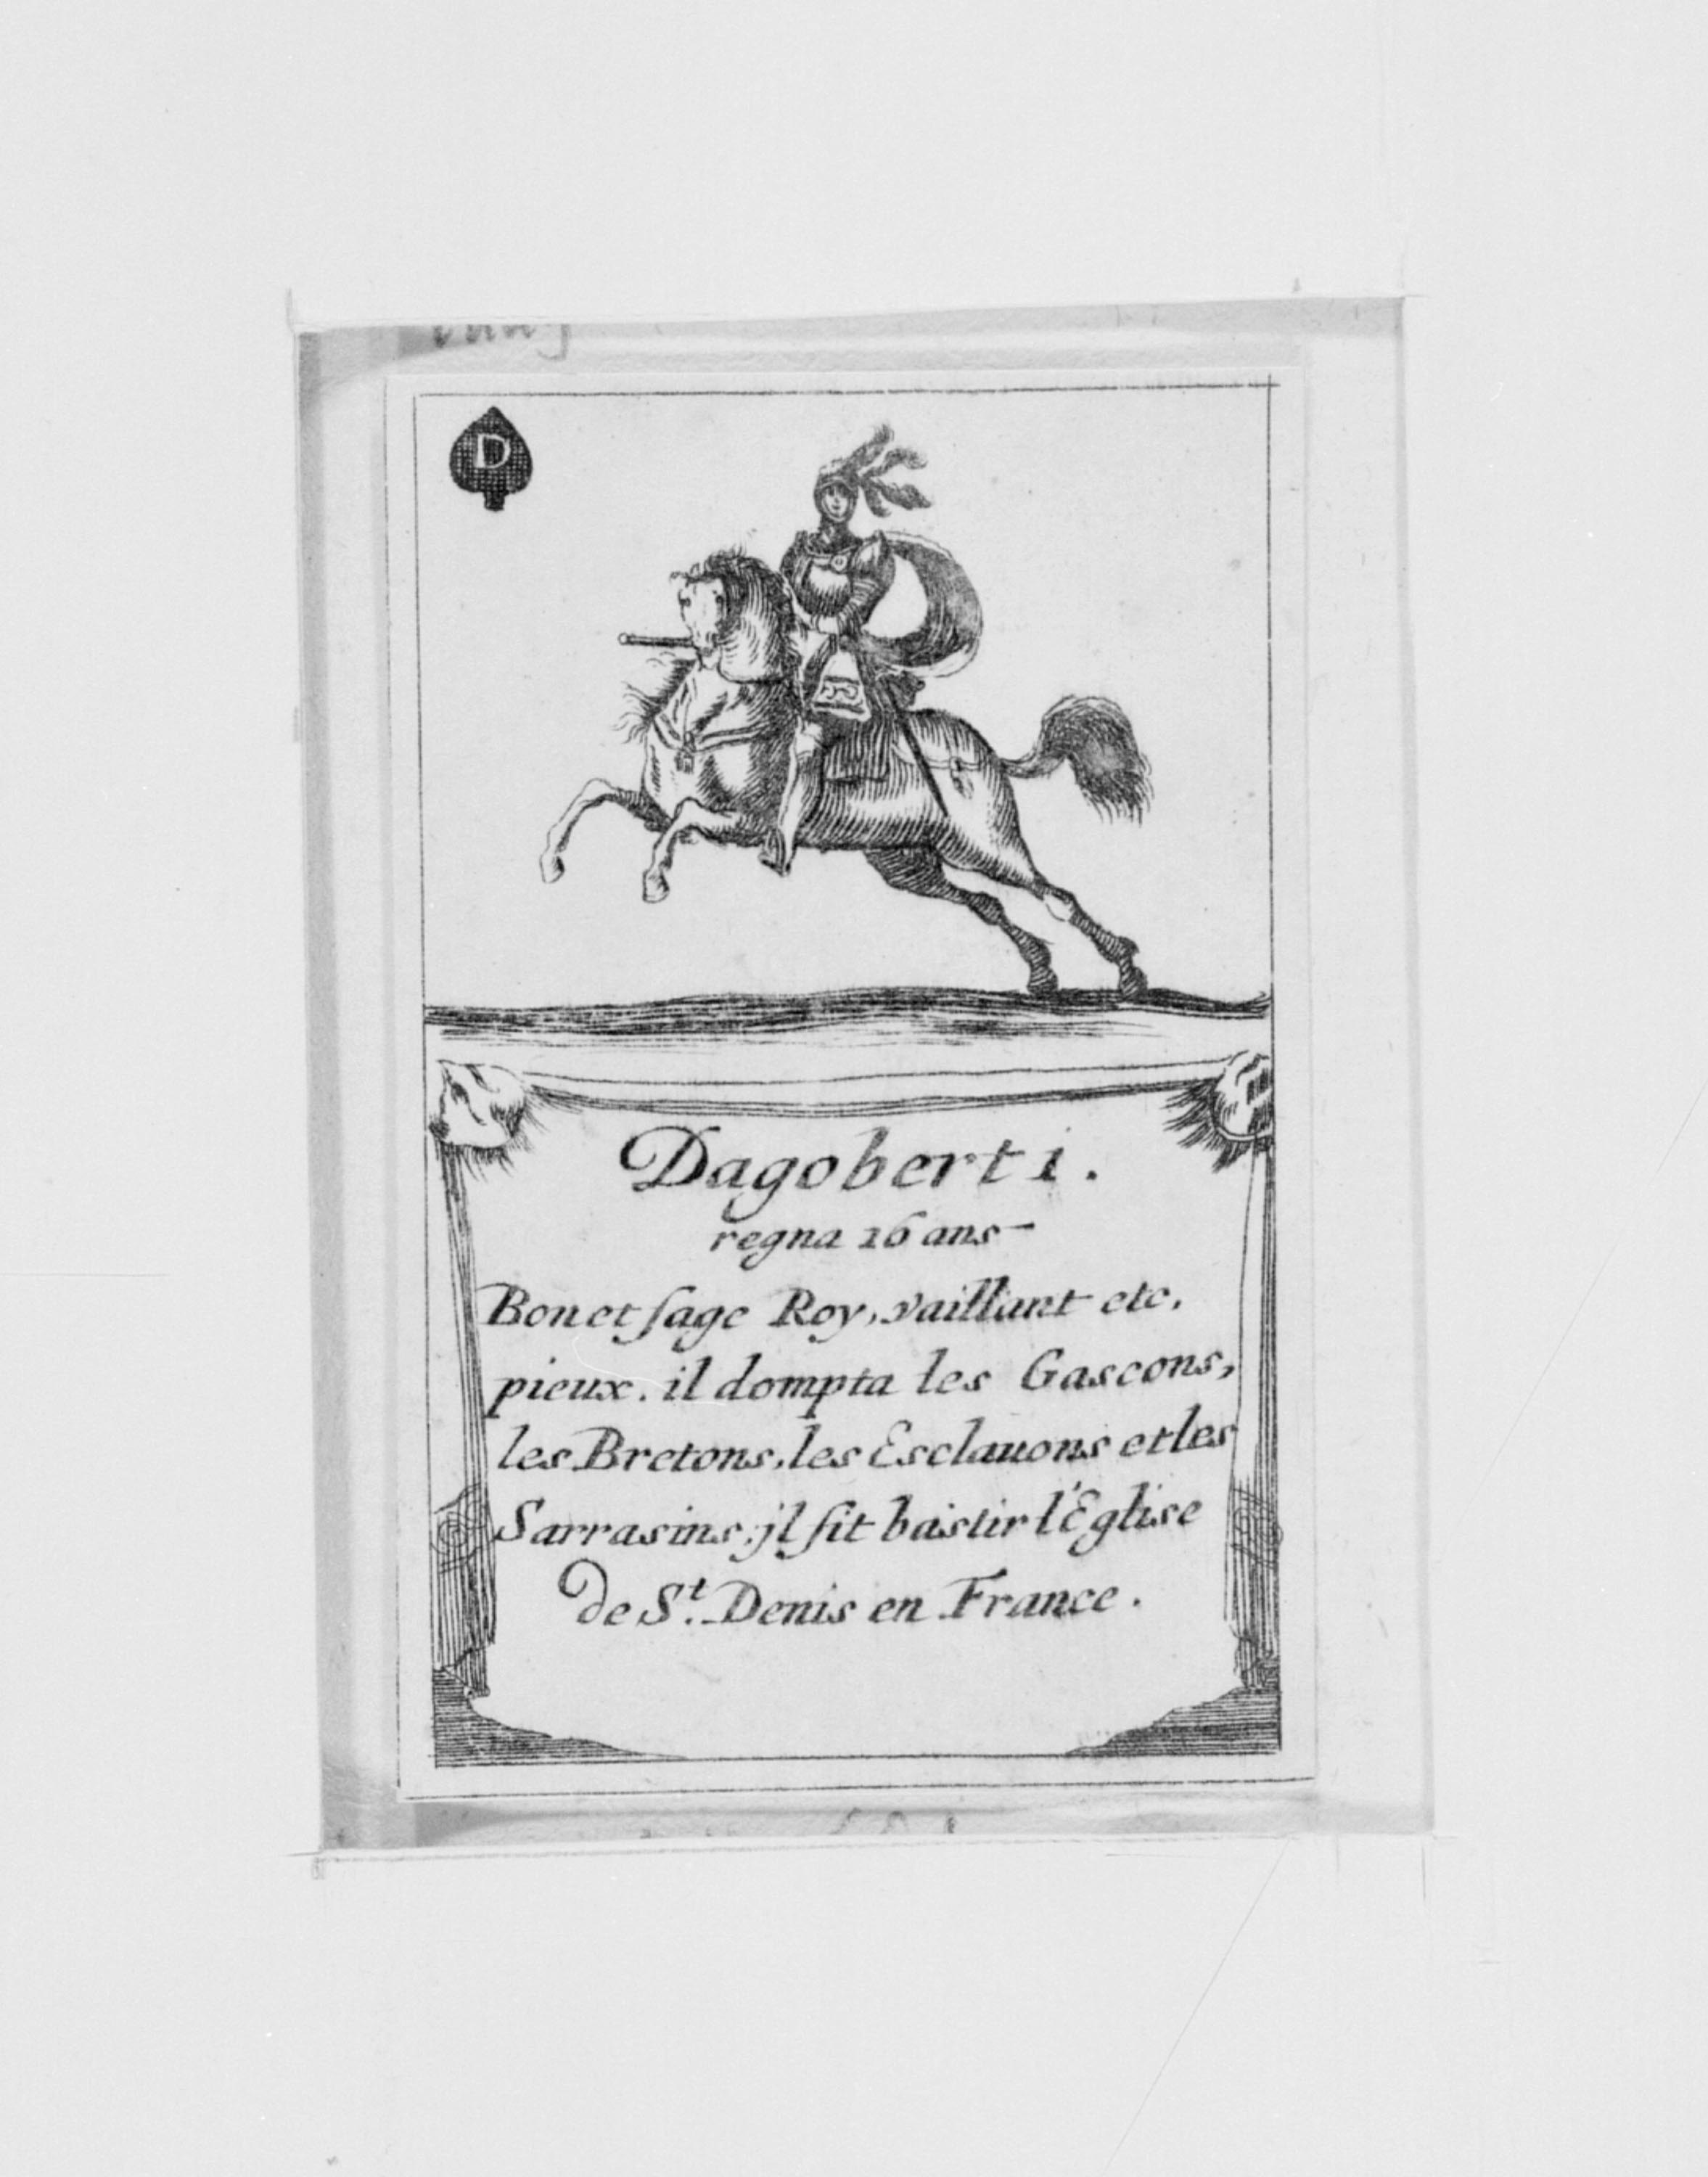 D
Dagobert 1.
regna 16 ans
Bon et ſage Roy, vaillant etc.
pieux. il dompta les Gascons,
les Bretons, les Esclauons et les
Sarrasins, jl fit bastir l'Eglise
de S.t Denis en France.